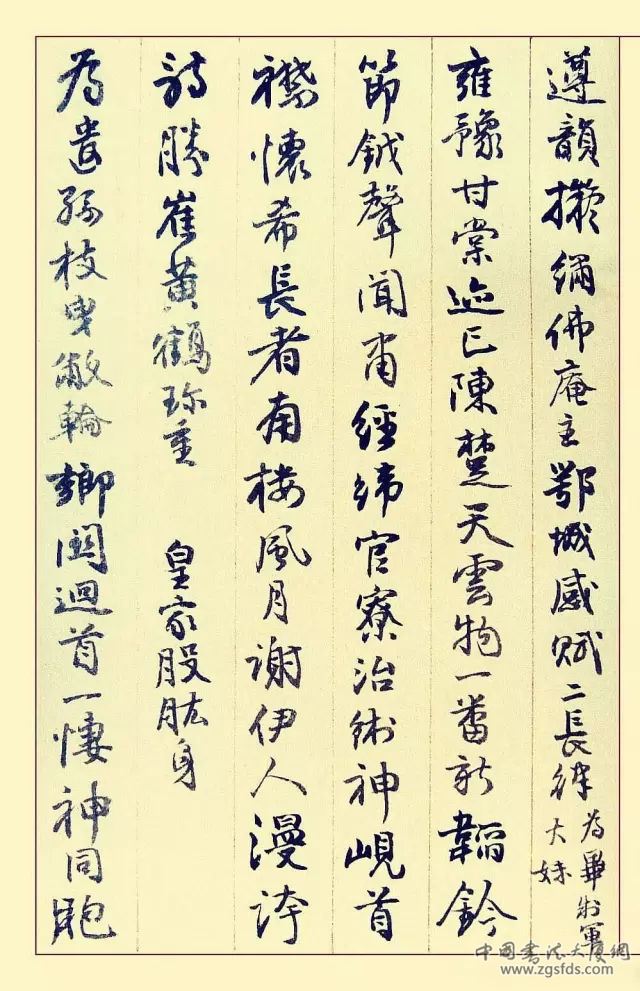 遵韻擬繙佛庵主鄂城感賦二長律為畢將軍
大妹
雍豫甘棠迹已陳楚天雲物一番新韜鈐
節鉞聲聞甯經緯官寮治術神峴首
襟懷希長者南樓風月謝伊人漫誇
詩勝崔黃鶴珍重 皇家股肱身
為遣孫枝曳敝輪鄉關迴首一悽神同胞
中国書法大厦網
www.zgsfds.com